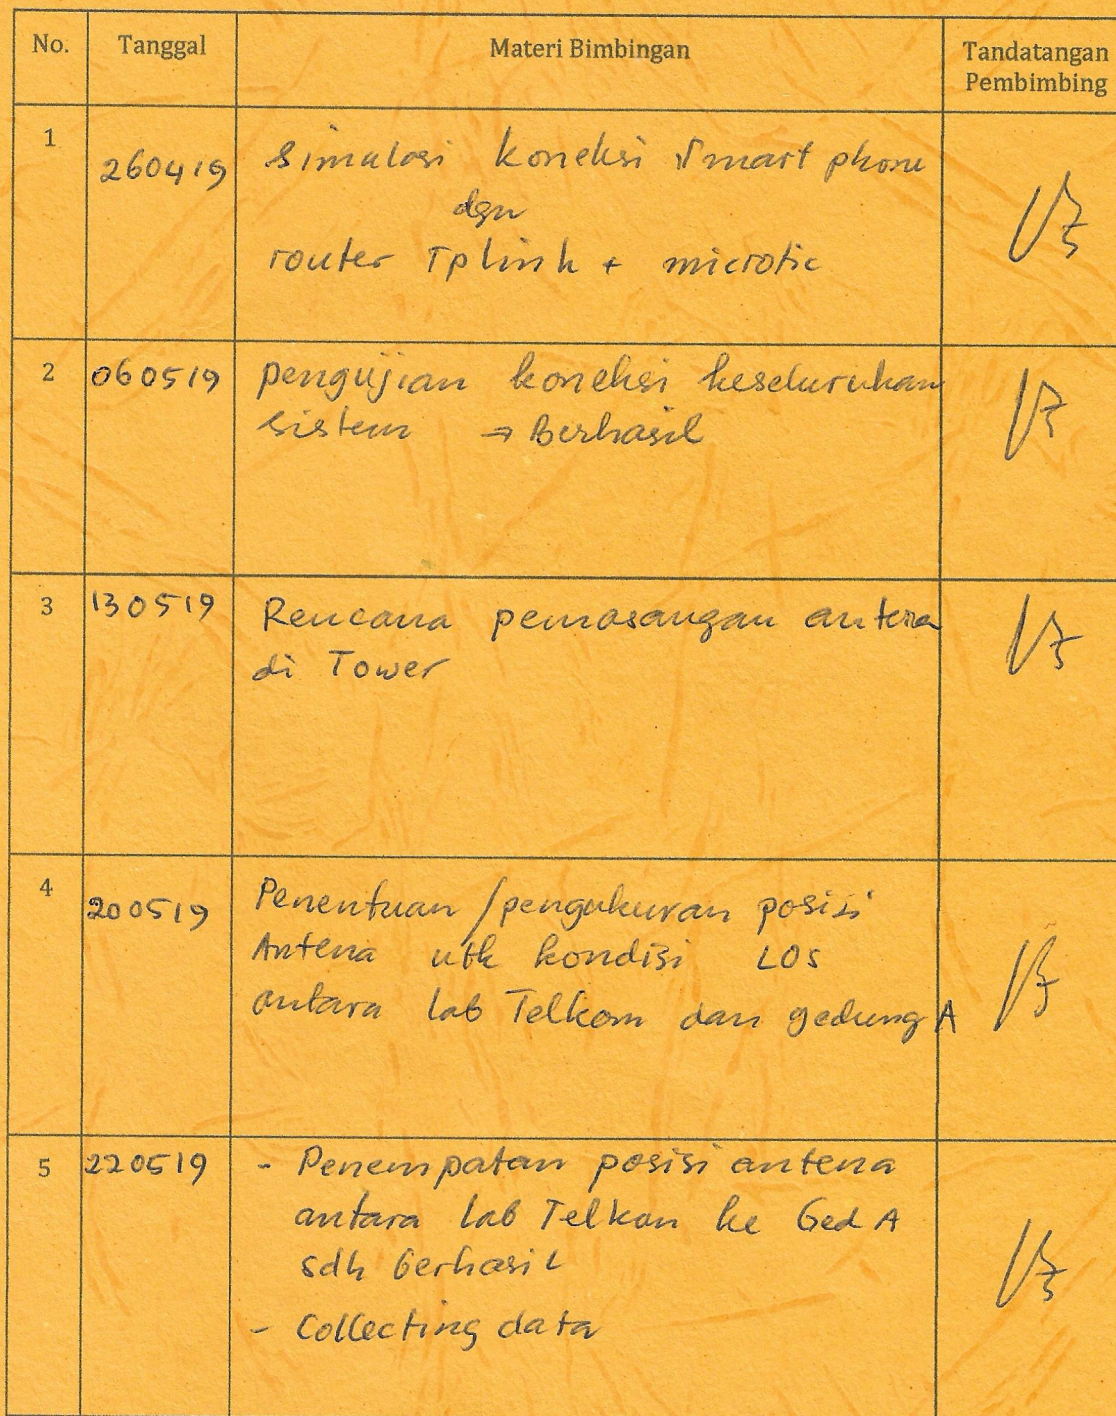 No. Tanggal Materi Bimbingan Tandatangan
Pembimbing
1
260419 simulasi koneksi smart phone
dgn
router Tplink + microtic
2 060519 pengujian koneksi keseluruhan
sistem ⇒ Berhasil
3 130519 Rencana pemasangan antena
di Tower
4 200519 Penentuan / pengukuran posisi
Antena utk kondisi LOS
antara lab Telkom dan gedung A
5 220519 - Penempatan posisi antena
antara lab Telkom ke Ged A
sdh berhasil
- Collecting data